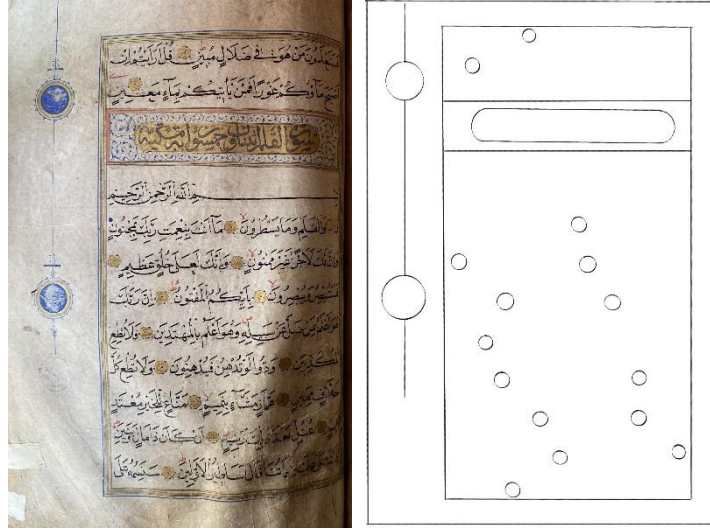 فستعلمون من هو في ضلال مبين قل ارايتم ان
اصبح ماؤكم غورا فمن ياتيكم بماء معين
سورة القلم اثنان وخمسون اية مكية
بسم الله الرحمن الرحيم
ن والقلم وما يسطرون ما انت بنعمت ربك بمجنون
وان لك لاجرا غير ممنون وانك لعلى خلق عظيم
فستبصر ويبصرون باييكم المفتون ان ربك
هو اعلم بمن ضل عن سبيله وهو اعلم بالمهتدين فلا تطع
المكذبين ودوا لو تدهن فيدهنون ولا تطع كل
حلاف مهين هماز مشاء بنميم مناع للخير معتد
اثيم عتل بعد ذلك زنيم ان كان ذا مال وبنين
اذا تتلى عليه اياتنا قال اساطير الاولين سنسمه على